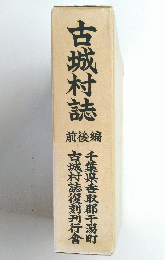 古城村誌
前後編
千葉県香取郡干潟町
古城村誌復刻刊行会